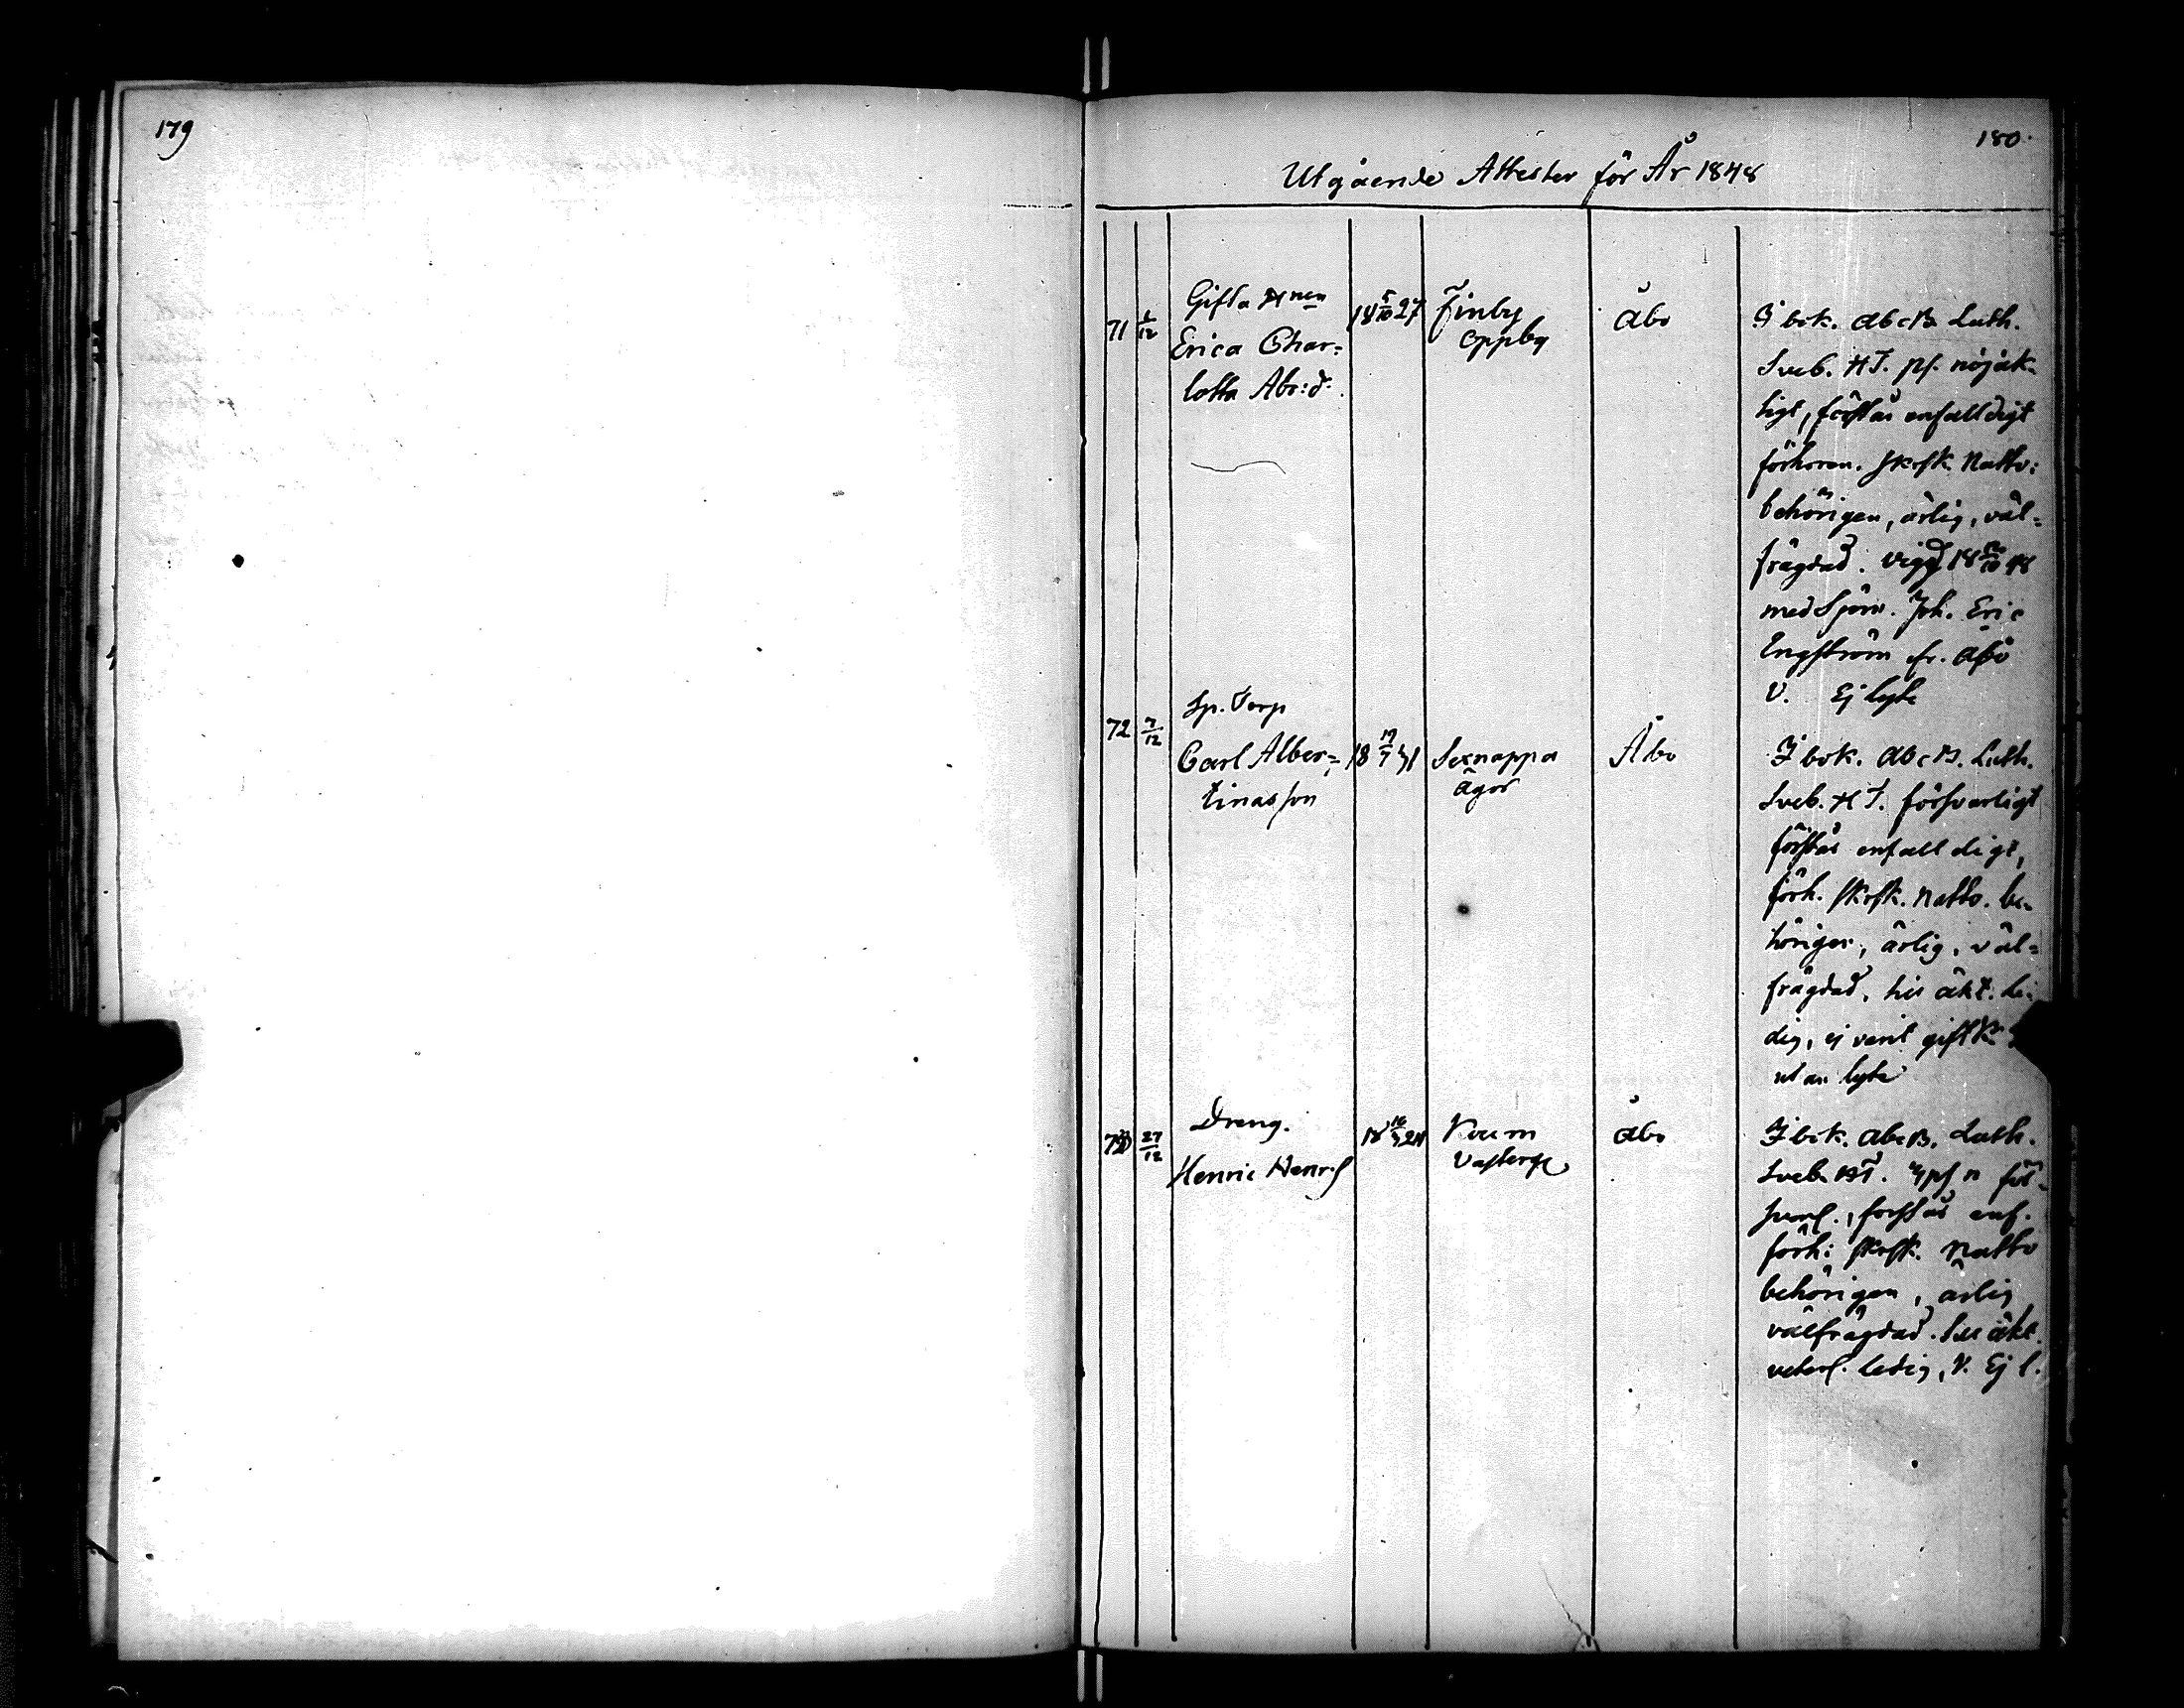 179
180.
Utgående Attester för År 1848
71
Gifta
Erica Char=
lotta Abr:d.
18 5/10 27
Finby
Oppby
Åbo
I bok. AbcB Luth.
Sveb. HT. ps. nöjak-
ligt, förstår enfalldigt
förhören. skrsk. Nattv:
behörigen, ärlig, väl=
frägdad. vigd 18 /10 48
med Sjöm. Joh. Eric
Engström fr. Åbo
V. Ej lyte
72
7/12
Sp. Torp
Carl Alber=
tinasson
18 17/7 31
Sexnappa
ägor
Åbo
I bok. AbcB. Luth.
Sveb. HT. försvarligt
förstår enfalldigt,
förh. skrsk. Nattv. be-
hörigen, ärlig, väl=
frägdad, till äkt. le-
dig, ej varit gift
utan lyte
73
27/12
Dreng.
Henric Henrs
18 16/3 24
Vasterge
Åbo
I bok. AbcB. Luth.
Sveb. HT. ps för-
svarl., förstår enf.
förh: skrsk. Nattv
behörigen, ärlig
välfrägdad. till äkt.
veterl. ledig, V. Ej l.